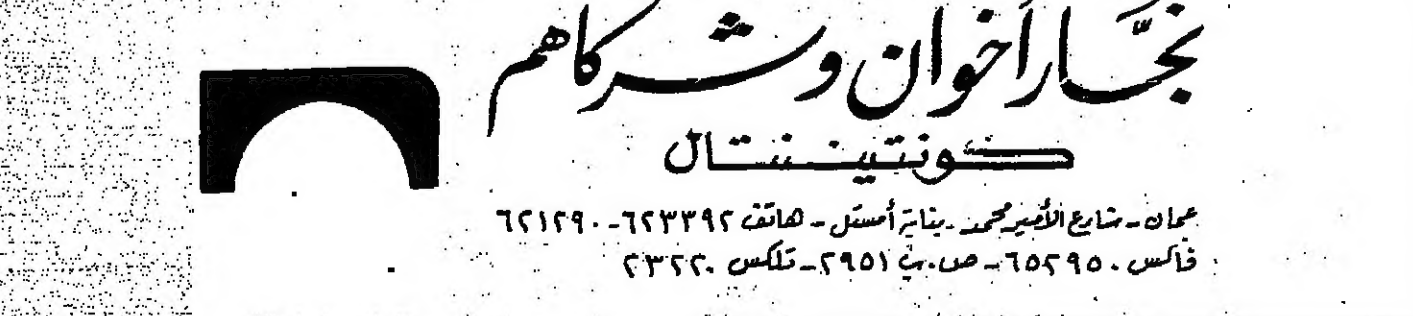 نجّار اخوان وشركاهم
كونتيننتال
عمان - شارع الأمير محمد - بناية أمستل - هاتف ٦٢٣٣٩٢ - ٦٢١٢٩٠
فاكس ٦٥٢٩٥٠ - ص.ب ٢٩٥١ - تلكس ٢٣٢٢٠